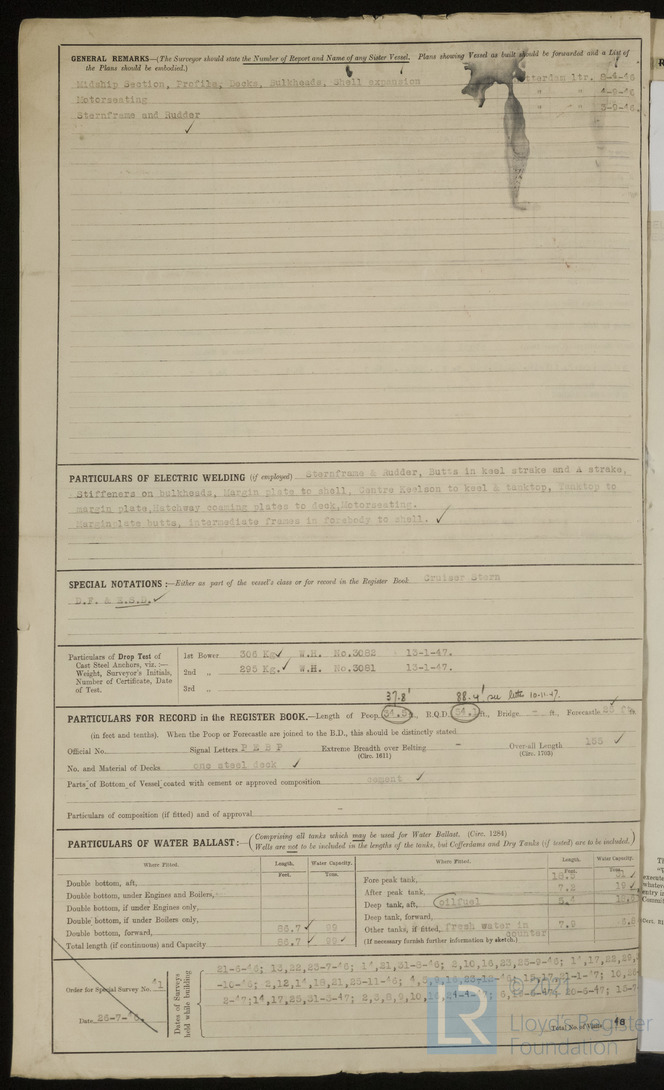 GENERAL REMARKS—(The Surveyor should state the Number of Report and Name of any Sister Vessel. Plans showing Vessel as built should be forwarded and a List of
the Plans should be embodied.)
Midship Section, Profile, Decks, Bulkheads, Shell expansion tterdam ltr. 8-4-46
Motorseating " " 4-9-46
Sternframe and Rudder " " 3-9-46.
PARTICULARS OF ELECTRIC WELDING (if employed) Sternframe & Rudder, Butts in keel strake and A strake,
Stiffeners on bulkheads, Margin plate to shell, Centre Keelson to keel & tanktop, Tanktop to
margin plate, Hatchway coaming plates to deck, Motorseating.
Marginplate butts, intermediate frames in forebody to shell.
SPECIAL NOTATIONS:—Either as part of the vessel's class or for record in the Register Book Cruiser Stern
D.F. & E.S.D.
Particulars of Drop Test of
Cast Steel Anchors, viz. :—
Weight, Surveyor's Initials,
Number of Certificate, Date
of Test.
1st Bower 306 Kg W.H. No.3082 - 13-1-47.
2nd " 295 Kg. W.H. No.3081 13-1-47.
3rd "
37.8' 88.4' see lette 10-11-47.
PARTICULARS FOR RECORD in the REGISTER BOOK.—Length of Poop ft., R.Q.D. ft., Bridge - ft., Forecastle
(in feet and tenths). When the Poop or Forecastle are joined to the B.D., this should be distinctly stated
Official No. Signal Letters P E B P Extreme Breadth over Belting - Over-all Length 165
(Circ. 1611) (Circ. 1703)
No. and Material of Decks one steel deck
Parts of Bottom of Vessel coated with cement or approved composition cement
Particulars of composition (if fitted) and of approval -
PARTICULARS OF WATER BALLAST:—(Comprising all tanks which may be used for Water Ballast. (Circ. 1284)
Wells are not to be included in the lengths of the tanks, but Cofferdams and Dry Tanks (if tested) are to be included.)
Where Fitted. Length. Water Capacity. Where Fitted. Length. Water Capacity.
Feet. Tons. Feet. Tons.
Double bottom, aft,
Double bottom, under Engines and Boilers,
Double bottom, if under Engines only,
Double bottom, if under Boilers only,
Double bottom, forward, 86.7 99
Total length (if continuous) and Capacity 86.7 99
Fore peak tank, 18.5
After peak tank, 7.2 19
Deep tank, aft, oilfuel 5.4
Deep tank, forward,
Other tanks, if fitted, fresh water in counter 7.9
(If necessary furnish further information by sketch.)
Order for Special Survey No. 41
Date 26-7-46.
Dates of Surveys held while building
Total No. of Visits 48
© 2021
LR
Lloyd's Register
Foundation